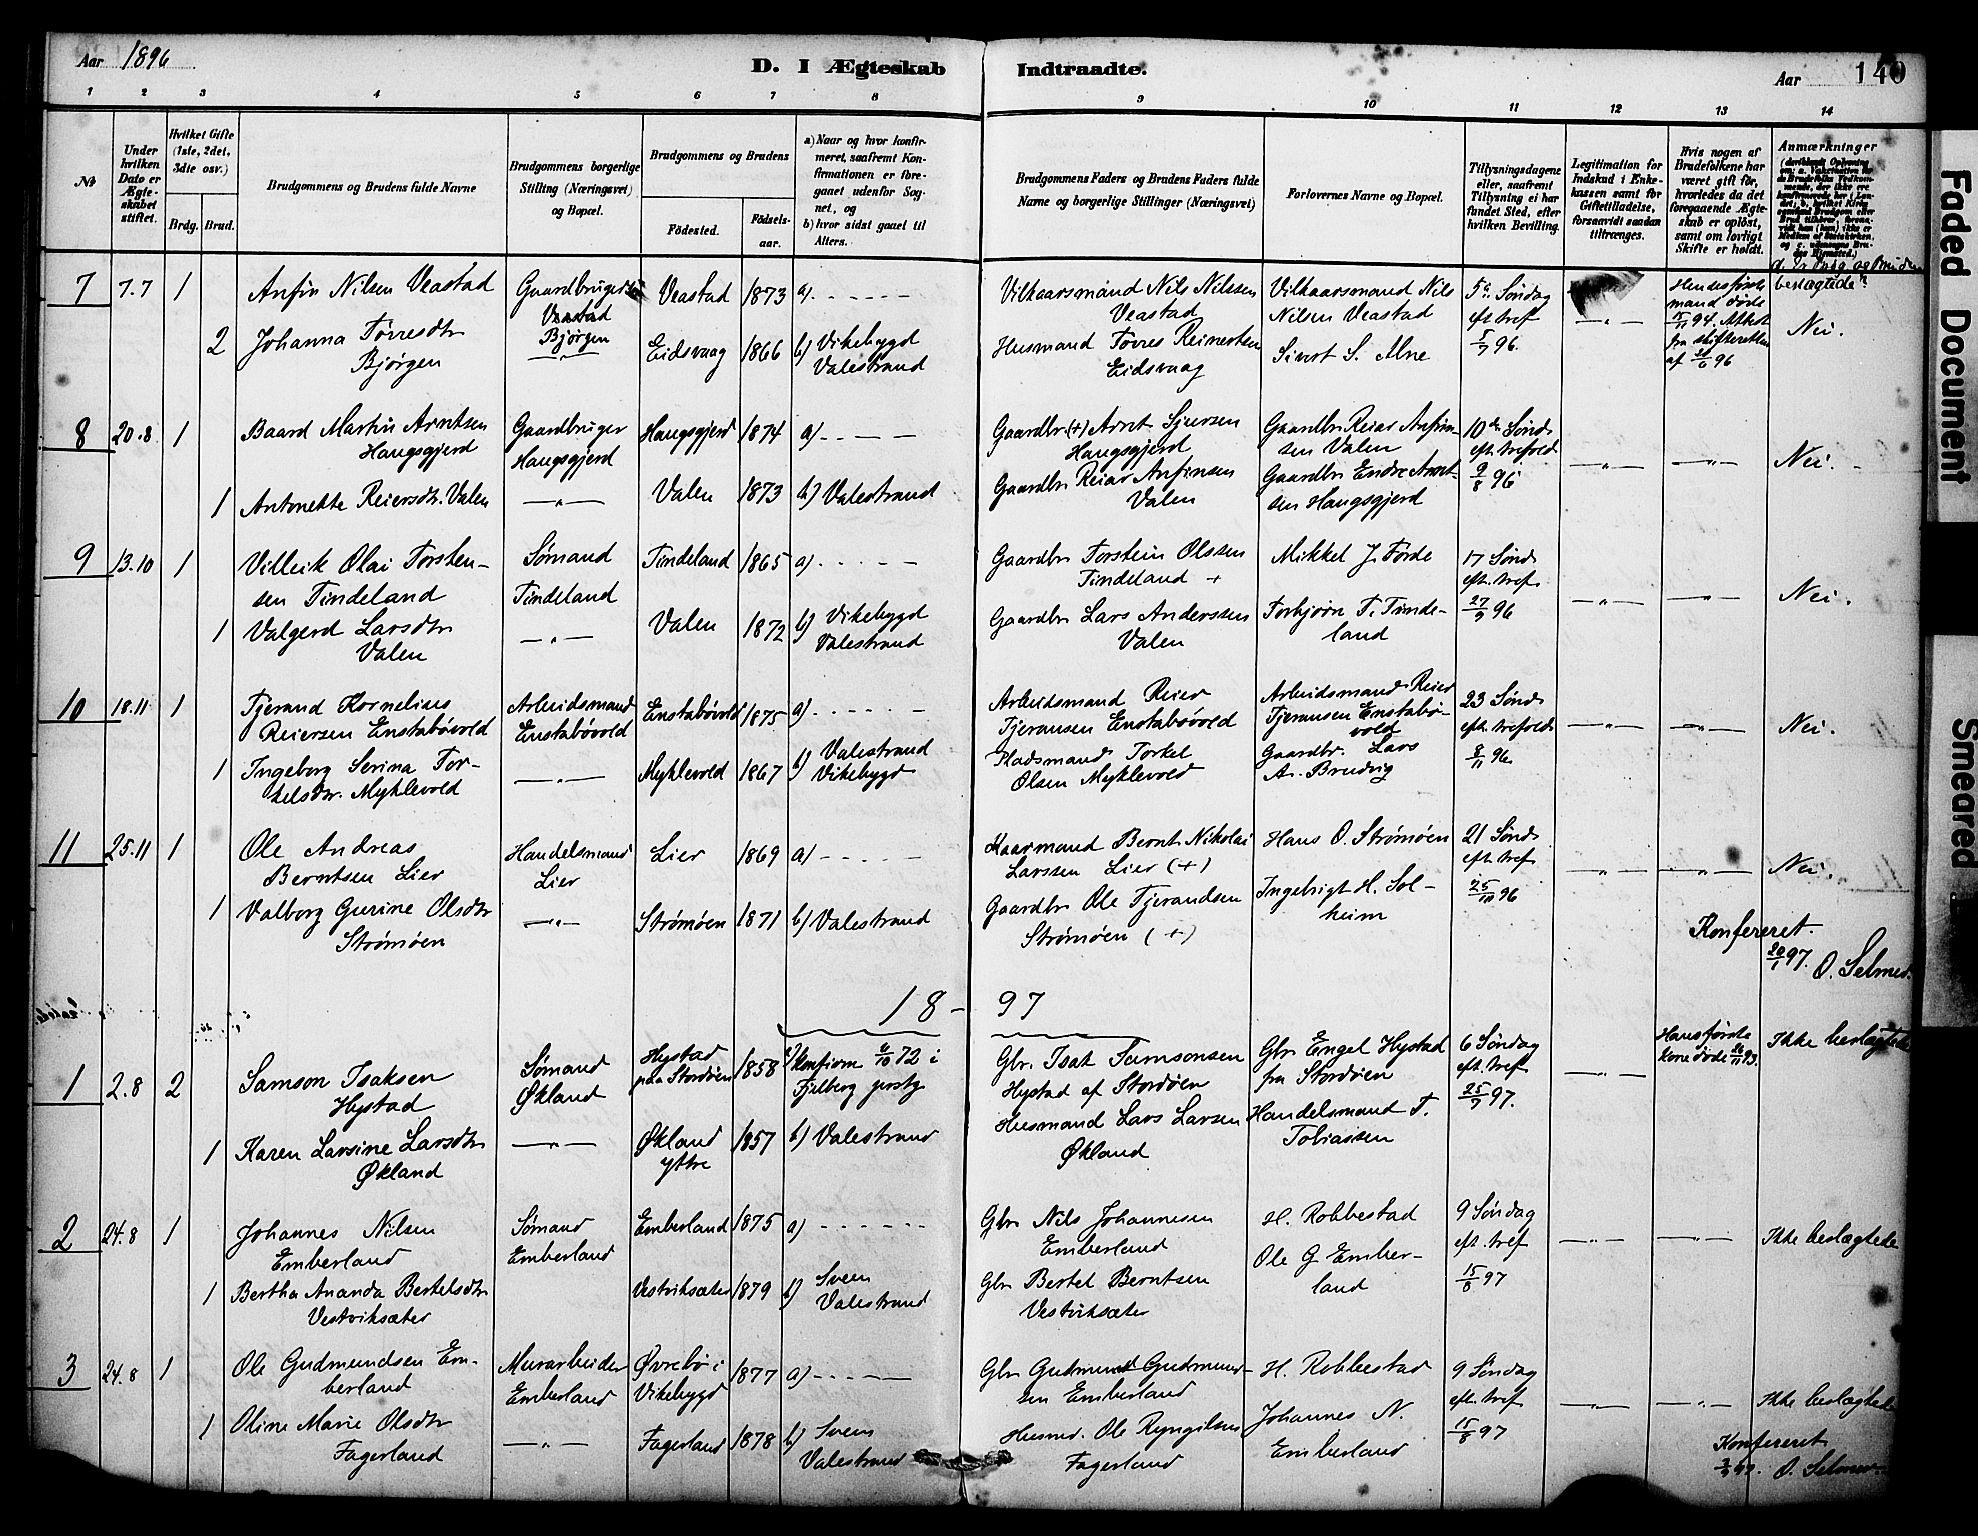 Aar 1896
D. I Ægteskab Indtraadte.
Aar 140
1 2 3 4 5 6 7 8 9 10 11 12 13 14
No
Under hvilken Dato er Ægteskabet stiftet.
Hvilket Gifte (1ste, 2det, 3die osv.)
Brdg. Brud.
Brudgommens og Brudens fulde Navne
Brudgommens borgerlige Stilling (Næringsvei) og Bopæl.
Brudgommens og Brudens
Fødested.
Fødselsaar.
a) Naar og hvor konfirmeret, saafremt Konfirmationen er foregaaet udenfor Sognet, og
b) hvor sidst gaaet til Alters.
Brudgommens Faders og Brudens Faders fulde Navne og borgerlige Stillinger (Næringsvei)
Forlovernes Navne og Bopæl.
Tillysningsdagene eller, saafremt Tillysning ei har fundet Sted, efter hvilken Bevilling.
Legitimation for Indskud i Enkekassen samt for Giftetilladelse, forsaavidt saadan tiltrænges.
Hvis nogen af Brudefolkene har været gift før, hvorledes da det foregaaende Ægteskab er opløst, samt om lovligt Skifte er holdt.
Anmærkninger
7 7.7 1 Anfin Nilsen Veastad Gaardbruger Veastad 1873 a) - - - - -
Veastad
Bjørgen
2 Johanna Tørresdtr Eidsvaag 1866 b) Vikebygd
Bjørgen Valestrand
Vilkaarsmand Nils Nilssen Vilkaarsmand Nils 5te Søndag
Veastad Nilsen Veastad eft. tref
Husmand Tørres Reinertsen Sivert S. Alne 5/7 96.
Eidsvaag
Hendes første
mand døde
15/11 94. Attest
fra skifteretten
af 26/6 96
beslægtede?
Nei.
8 20.8 1 Baard Martin Arntsen Gaardbruger Haugsgjerd 1874 a) - - - -
Haugsgjerd Haugsgjerd
1 Antonette Reiersdtr. Valen —"— Valen 1873 b) Valestrand
Gaardbr. (+) Arnt Sjursen Gaardbr. Reiar Anfin- 10de Sønd.
Haugsgjerd sen Valen eft. trefold.
Gaardbr Reiar Anfinsen Gaardbr. Endre Arnt- 9/8 96
Valen sen Haugsgjerd
—"— —"— Nei.
9 13.10 1 Villeik Olai Torsten- Sømand Tindeland 1865 a) - - - - -
sen Tindeland Tindeland
1 Valgerd Larsdtr —"— Valen 1872 b) Vikebygd
Valen Valestrand
Gaardbr Torstein Olssen Mikkel J. Førde 17 Sønd.
Tindeland + eft. tref.
Gaardbr Lars Anderssen Torbjørn T. Tinde- 27/9 96
Valen land
—"— —"— Nei.
10 18.11 1 Tjerand Kornelius Arbeidsmand Enstabøvold 1875 a) - - - - -
Reiersen Enstabøvold Enstabøvold
1 Ingeborg Serina Tor- —"— Myklevold 1867 b) Valestrand
kelsdtr. Myklevold Vikebygd
Arbeidsmand Reier Arbeidsmand Reier 23 Sønd.
Tjeransen Enstabøvold Tjeransen Enstabø- eft. trefold.
vold
Pladsmand Torkel Gaardbr. Lars 8/11 96.
Olsen Myklevold A. Brudvig
—"— —"— Nei.
11 25.11 1 Ole Andreas Handelsmand Lier 1869 a) - - - -
Berntsen Lier Lier
1 Valborg Gurine Olsdtr —"— Strømøen 1871 b) Valestrand
Strømøen
Kaarmand Bernt Nikolai Hans O. Strømøen 21 Sønd.
Larssen Lier (+) eft. tref
Gaardbr Ole Tjerandsen Ingebrigt H. Sol- 25/10 96
Strømøen (+) heim
—"— —"— Nei.
Konfereret.
20/1 97. O. Selmer.
18-97
1 2.8 2 Samson Isaksen Sømand Hystad 1858 a) Konfirm 6/10 72 i
Hystad Økland paa Stordøen Fjelberg prstgj
1 Karen Larsine Larsdtr —"— Økland 1857 b) Valestrand
Økland ytre
Gbr. Isak Samsonsen Gbr. Engel Hystad 6 Søndag
Hystad af Stordøen fra Stordøen eft. tref
Husmand Lars Larsen Handelsmand T. 25/7 97.
Økland Tobiassen
—"— Hans første
kone døde
Ikke beslægtede
2 24.8 1 Johannes Nilsen Sømand Emberland 1875 a) - - - - - -
Emberland Emberland
1 Bertha Ananda Bertelsdtr Vestviksæter 1879 b) Sveen
Vestviksæter Valestrand
Gbr Nils Johannesen H. Robbestad 9 Søndag
Emberland eft. tref
Gbr Bertel Berntsen Ole G Ember- 15/8 97
Vestviksæter land
—"— —"— Ikke beslægtede
3 24.8 1 Ole Gudmundsen Em- Murarbeider Øvrebø i 1877 a) - - - - -
berland Emberland Vikebygd
1 Oline Marie Olsdtr —"— Fagerland 1878 b) Sveen
Fagerland Valestrand
Gbr Gudmund Gudmund- H. Robbestad 9 Søndag
sen Emberland eft. tref
Husmd. Ole Ryngilsen Johannes N. 15/8 97
Fagerland Emberland
—"— —"— Ikke beslægtede
Konfereret
O. Selmer.
Faded Document
Smeared